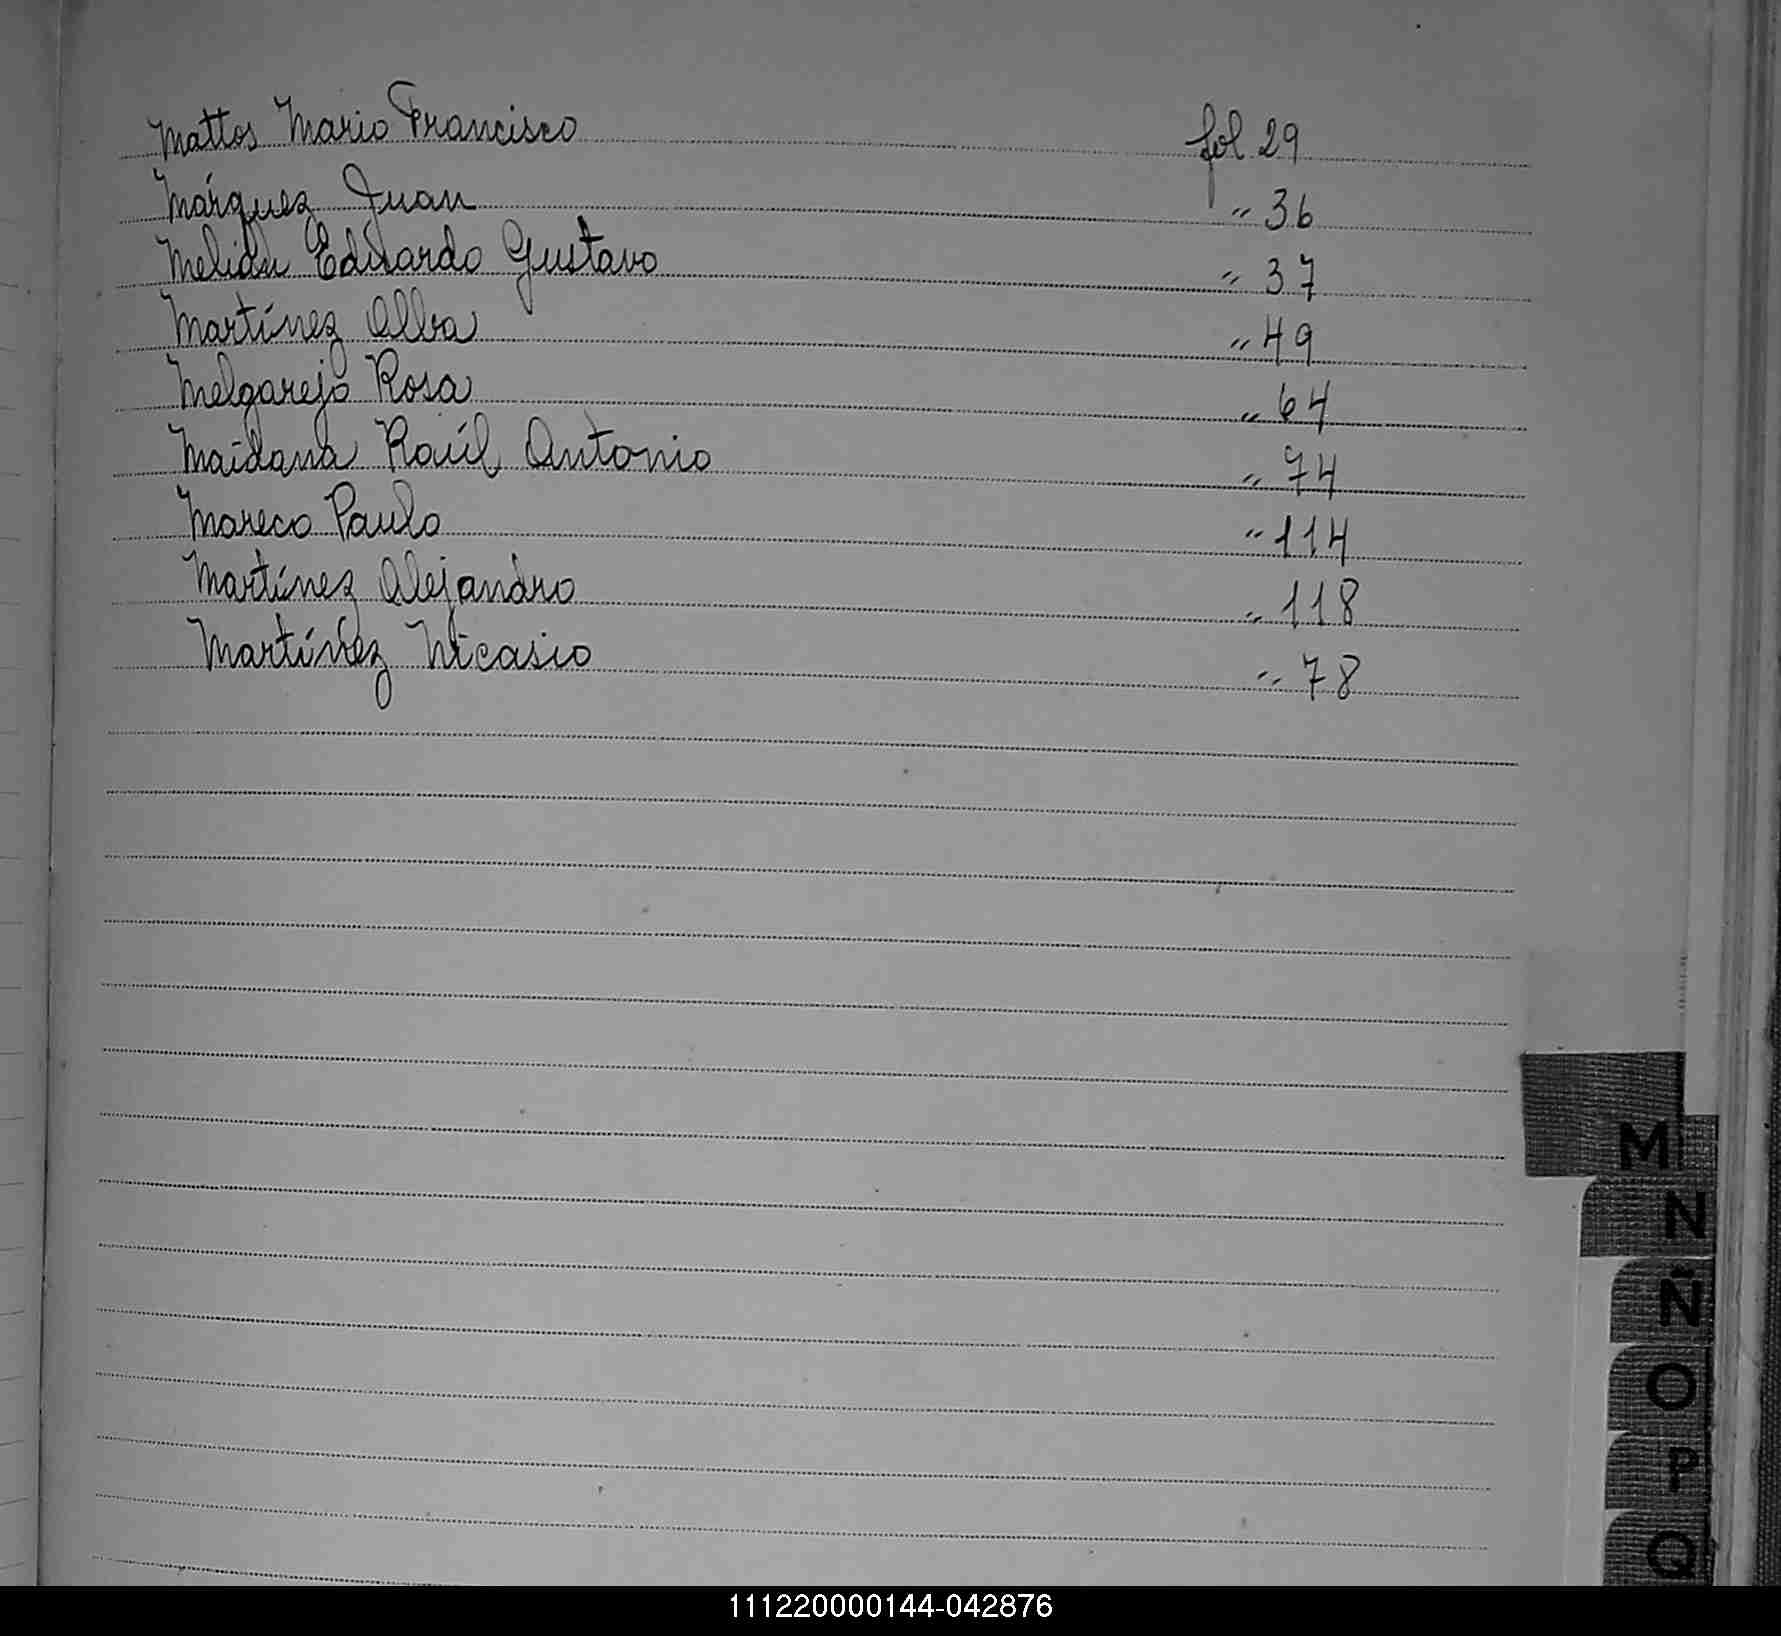 Mattos Mario Francisco fol 29
Márquez Juan " 36
Melián Eduardo Gustavo " 37
Martínez Alba " 49
Melgarejo Rosa " 64
Maidana Raúl Antonio " 74
Mareco Paulo " 114
Martínez Alejandro " 118
Martínez Nicasio " 78
M
N
Ñ
O
P
Q
111220000144-042876